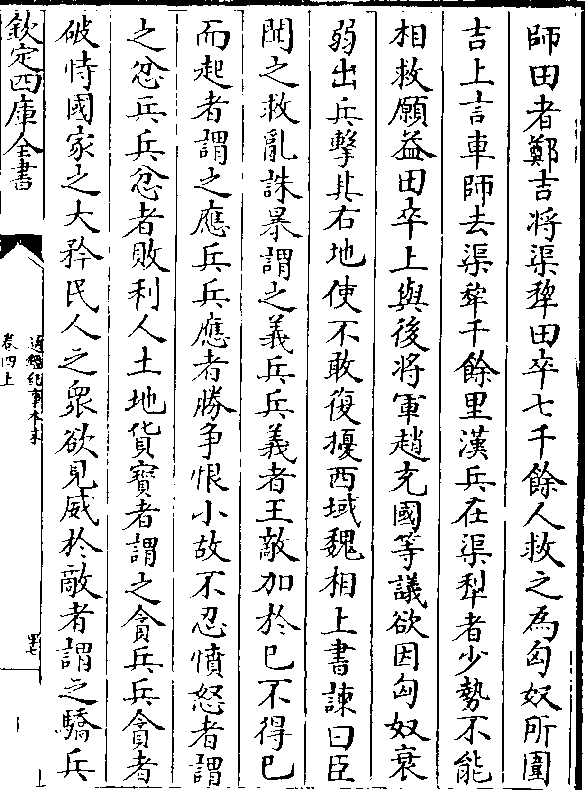 師田者鄭吉将渠犂田卒七千餘人救之為匈奴所圍
吉上言車師去渠犂千餘里漢兵在渠犂者少勢不能
相救願益田卒上與後将軍趙充國等議欲因匈奴衰
弱出兵擊其右地使不敢復擾西域魏相上書諫曰臣
聞之救亂誅暴謂之義兵兵義者王敵加於已不得已
而起者謂之應兵兵應者勝争恨小故不忍憤怒者謂
之忿兵兵忿者敗利人土地貨寶者謂之貪兵兵貪者
破恃國家之大矜民人之衆欲見威於敵者謂之驕兵
欽定四庫全書
通鑑紀事本末
卷四上